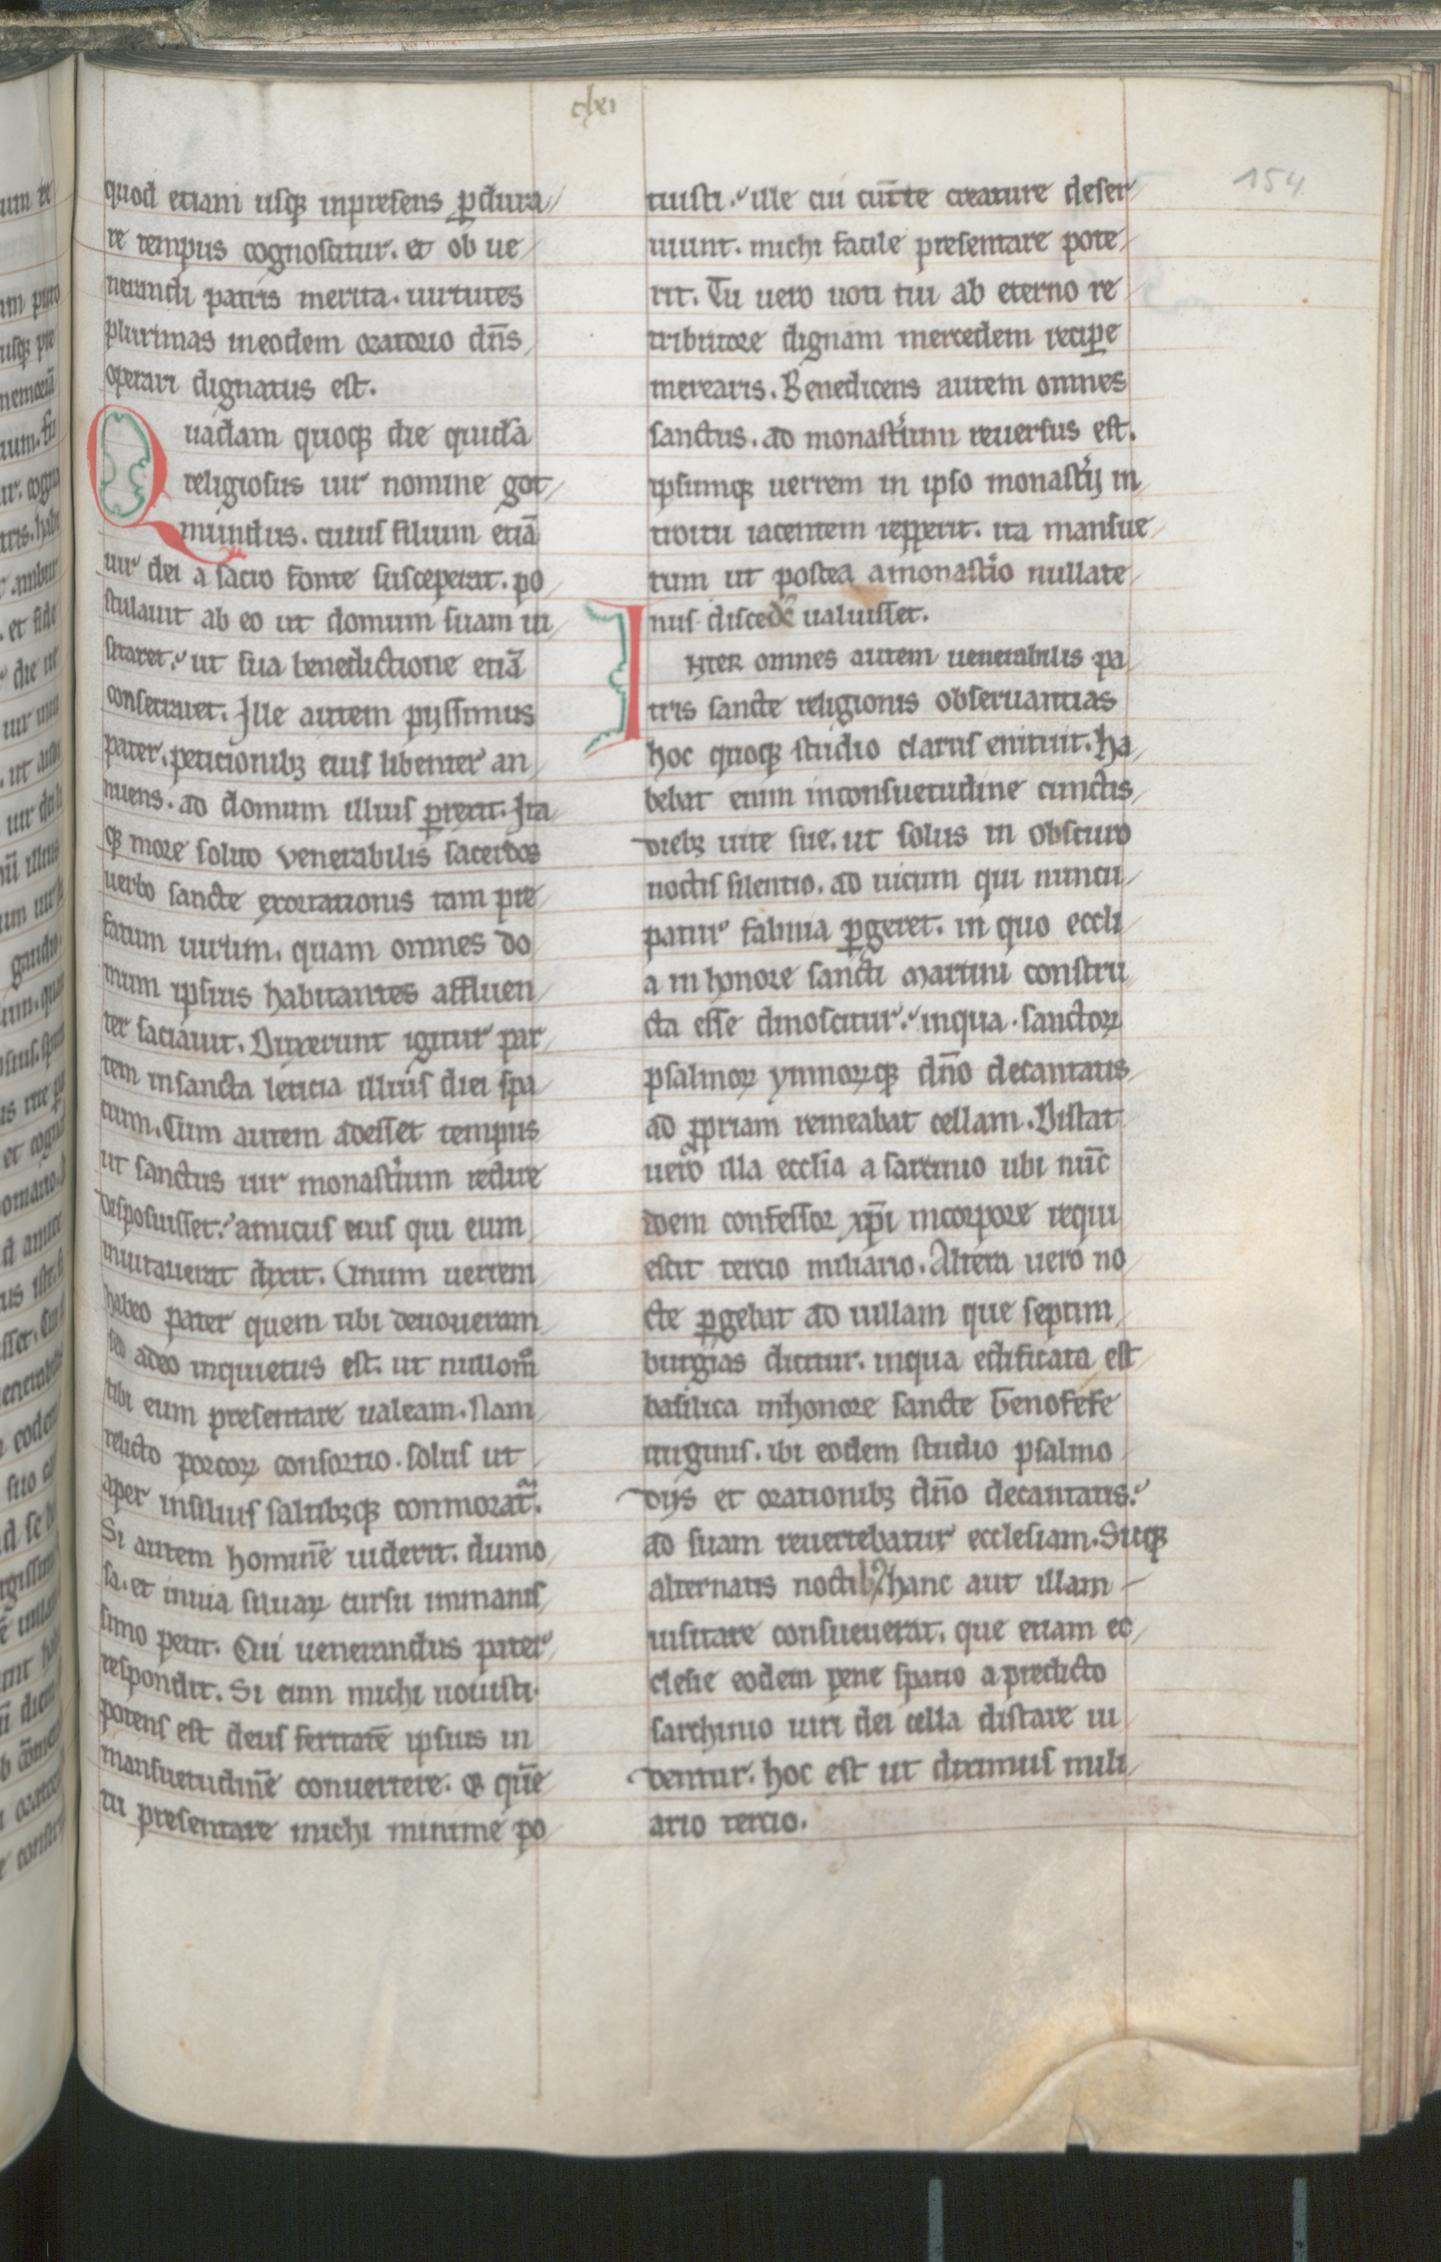 clxi
154
quod etiam usq; inpresens p̱dura/
re tempus cognoscitur. et ob ue/
nerandi patris merita. uirtutes
plurimas ineodem oratorio dn̄s
operari dignatus est.
Quadam quoq; die quidā
religiosus uir nomine got/
mundus. cuius filium etiā
uir dei a sacro fonte susceperat. po/
stulauit ab eo ut domum suam ui/
sitaret. ut sua benedictione etiā
consecraret. Ille autem pijssimus
pater. peticionibꝫ eius libenter an/
nuens. ad domum illius ꝑrexit. Ita
q; more solito venerabilis sacerdos
uerbo sancte exortationis tam pre/
fatum uirum. quam omnes do
mum ipsius habitantes affluen/
ter saciauit. Duxerunt igitur par/
tem insancta leticia illius diei spa
cium. Cum autem adesset tempus
ut sanctus uir monastium redire
disposuisset. amicus eius qui eum
inuitauerat dixit. Unum uerrem
habeo pater quem tibi deuoueram
sed adeo inquietus est. ut nullom̊
tibi eum presentare ualeam. Nam
relicto porcoꝝ consortio. solus ut
aper insiluis saltibꝫq; conmorat᷑.
Si autem hominē uiderit. dumo
sa. et inuia siluaꝝ cursu inmanis/
simo petit. Cui uenerandus pater
respondit. Si eum michi uouisti.
potens est deus feritatē ipsius in
mansuetudinē conuertere. & quē
tu presentare michi minime po
tuisti. ille cui cūcte creature deser/
uiunt. michi facile presentare pote/
rit. Tu uero uoti tui ab eterno re
tributore dignam mercedem recipe
merearis. Benedicens autem omnes
sanctus. ad monastium reuersus est.
ipsumq; uerrem in ipso monastij in/
troitu iacentem reꝑperit. ita mansue/
tum ut postea amonastio nullate/
nus discede ualuisset.
INTER omnes autem uenerabilis pa
tris sancte religionis obseruantias
hoc quoq; studio clarus enituit. ha
bebat enim inconsuetudine cunctis
diebꝫ uite sue. ut solus in obscuro
noctis silentio. ad uicum qui nuncu/
patur fabiua ꝑgeret. in quo eccli
a in honore sancti martini constru
cta esse dinoscitur. inqua. sanctoꝝ
psalmoꝝ ymnoꝝq; dn̄o decantatis
ad ꝓpriam remeabat cellam. Distat
uero illa ecclia a sarcinio ubi nūc
idem confessor xp̄i incorpore requi
escit tercio miliario. Altera uero no
cte ꝑgebat ad uillam que septim/
burgias dicitur. inqua edificata est
basilica inhonore sancte Genofefe
uirginis. ibi eodem studio psalmo
dijs et orationibꝫ dn̄o decantatis.
ad suam reuertebatur ecclesiam. Sicq;
alternatis noctibꝫ hanc aut illam
uisitare consueuerat. que etiam ec/
clesie eodem pene spatio a predicto
sarchinio uiri dei cella distare ui
dentur. hoc est ut diximus mili/
ario tercio.